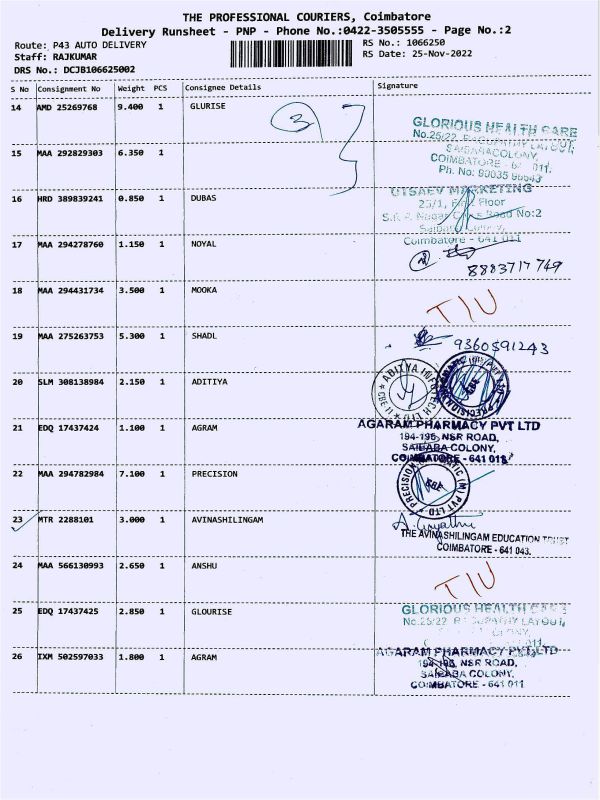 THE PROFESSIONAL COURIERS, Coimbatore
Delivery Runsheet - PNP - Phone No.:0422-3505555 - Page No.:2
Route: P43 AUTO DELIVERY RS No.: 1066250
Staff: RAJKUMAR RS Date: 25-Nov-2022
DRS No.: DCJB106625002
S No Consignment No Weight PCS Consignee Details Signature
14 AMD 25269768 9.400 1 GLURISE
3
GLORIOUS HEALTH CARE
No.25/22, LAYOUT,
15 MAA 292829303 6.350 1
SAIBABACOLONY,
COIMBATORE - 011.
Ph. No:
16 HRD 389839241 0.850 1 DUBAS
MARKETING
25/1, Floor
Road No:2
17 MAA 294278760 1.150 1 NOYAL
Coimbatore - 641 011
8883717749
18 MAA 294431734 3.500 1 MOOKA
TIU
19 MAA 275263753 5.300 1 SHADL
9360591243
20 SLM 308138984 2.150 1 ADITIYA
ADITYA INFOTECH LTD
CBE-11
PRECISION
21 EDQ 17437424 1.100 1 AGRAM
AGARAM PHARMACY PVT LTD
194-195, NSR ROAD,
SAIBABA COLONY,
COIMBATORE - 641 011
22 MAA 294782984 7.100 1 PRECISION
PRECISION (M) PVT LTD
23 MTR 2288101 3.000 1 AVINASHILINGAM
THE AVINASHILINGAM EDUCATION TRUST
COIMBATORE - 641 043.
24 MAA 566130993 2.650 1 ANSHU
TIU
25 EDQ 17437425 2.850 1 GLOURISE
GLORIOUS HEALTH CARE
No.25/22, LAYOUT,
26 IXM 502597033 1.800 1 AGRAM
AGARAM PHARMACY PVT LTD
194-195, NSR ROAD,
SAIBABA COLONY,
COIMBATORE - 641 011